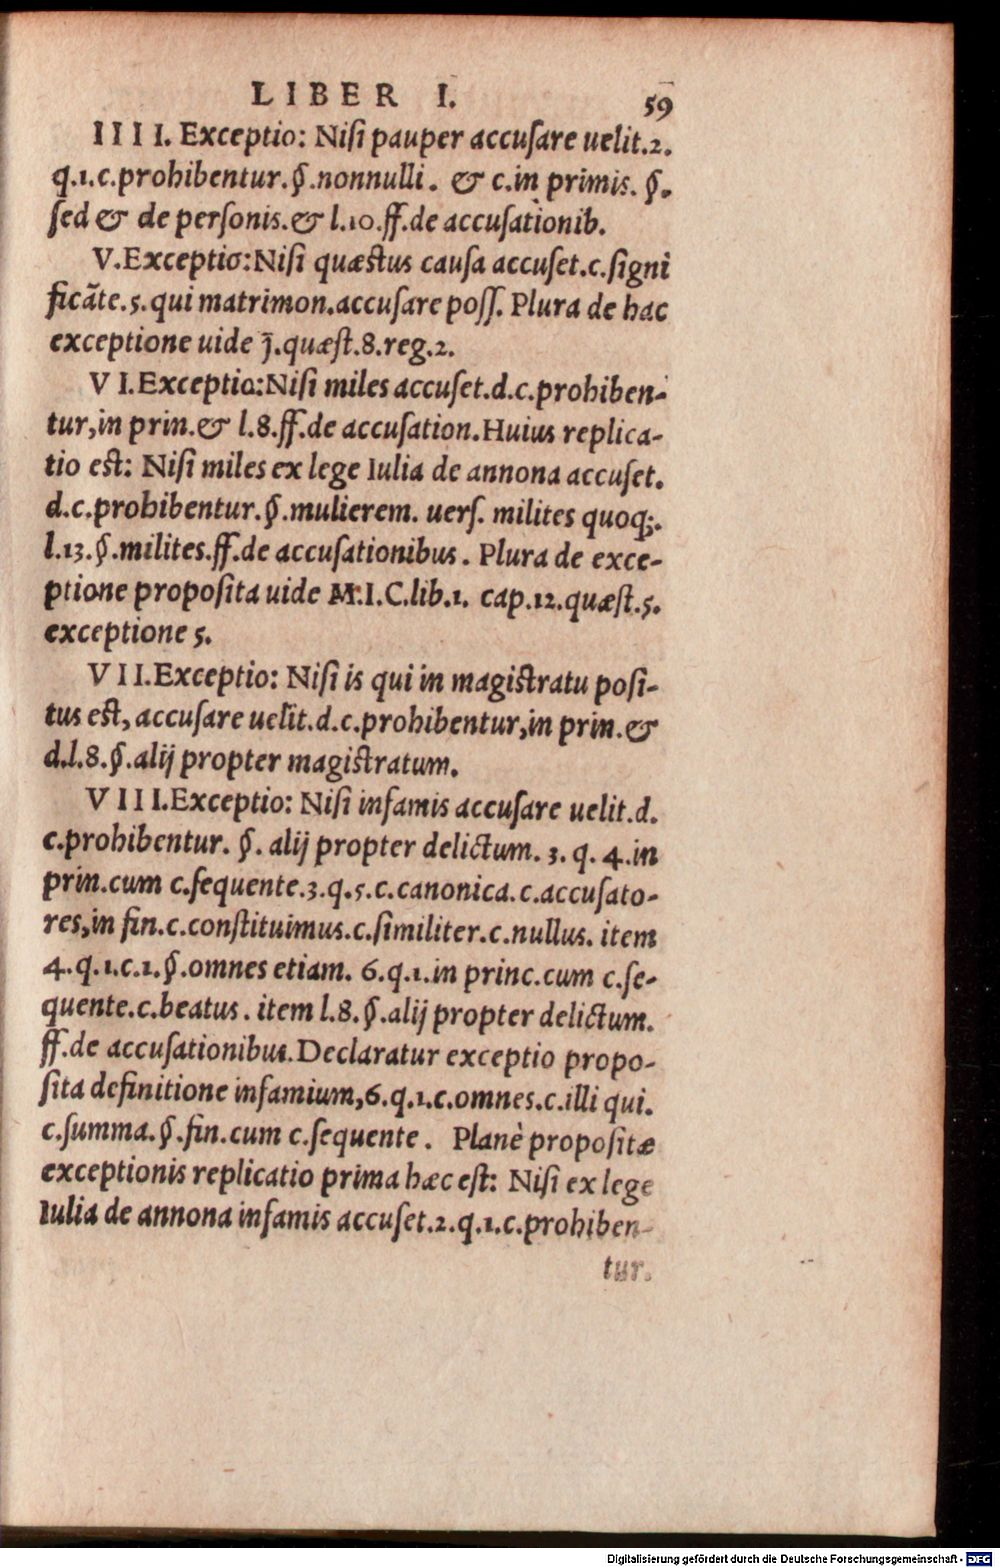 LIBER I. 59
IIII. Exceptio: Niſi pauper accuſare uelit.2.
q.1.c.prohibentur.§.nonnulli. & c.in primis. §.
ſed & de perſonis.& l.10.ff.de accuſationib.
V.Exceptio:Niſi quæſtus cauſa accuſet.c.ſigni
ficāte.5.qui matrimon.accuſare poſſ. Plura de hac
exceptione uide j̄.quæſt.8.reg.2.
VI.Exceptio:Niſi miles accuſet.d.c.prohiben-
tur,in prin.& l.8.ff.de accuſation.Huius replica-
tio eſt: Niſi miles ex lege Iulia de annona accuſet.
d.c.prohibentur.§.mulierem. uerſ. milites quoq;.
l.13.§.milites.ff.de accuſationibus. Plura de exce-
ptione propoſita uide M.I.C.lib.1. cap.12.quæſt.5.
exceptione 5.
VII.Exceptio: Niſi is qui in magiſtratu poſi-
tus eſt, accuſare uelit.d.c.prohibentur,in prin.&
d.l.8.§.alij propter magiſtratum.
VIII.Exceptio: Niſi infamis accuſare uelit.d.
c.prohibentur. §. alij propter delictum. 3. q. 4.in
prin.cum c.ſequente.3.q.5.c.canonica.c.accuſato-
res,in fin.c.conſtituimus.c.ſimiliter.c.nullus. item
4.q.1.c.1.§.omnes etiam. 6.q.1.in princ.cum c.ſe-
quente.c.beatus. item l.8.§.alij propter delictum.
ff.de accuſationibus.Declaratur exceptio propo-
ſita definitione infamium,6.q.1.c.omnes.c.illi qui.
c.ſumma.§.fin.cum c.ſequente. Planè propoſitæ
exceptionis replicatio prima hæc eſt: Niſi ex lege
Iulia de annona infamis accuſet.2.q.1.c.prohiben-
tur.
Digitalisierung gefördert durch die Deutsche Forschungsgemeinschaft - DFG